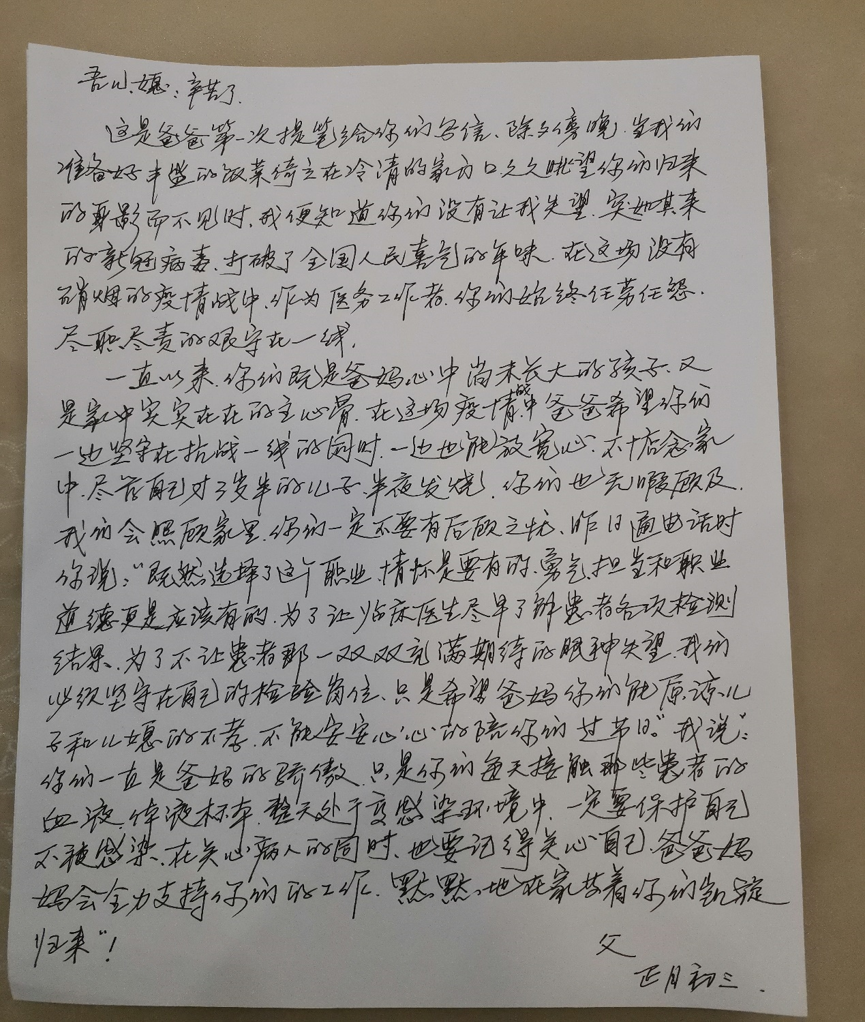 吾儿、媳：辛苦了.
这是爸爸第一次提笔给你们写信、除夕傍晚、当我们
准备好丰盛的饭菜倚立在冷清的家门口久久眺望你们归来
的身影而不见时、我便知道你们没有让我失望、突如其来
的新冠病毒、打破了全国人民喜气的年味、在这场没有
硝烟的疫情战中、作为医务工作者、你们始终任劳任怨.
尽职尽责的艰守在一线,
一直以来、你们既是爸妈心中尚未长大的孩子、又
是家中实实在在的主心骨、在这场疫情战中爸爸希望你们
一边坚守在抗战一线的同时、一边也能放宽心、不惦念家
中、尽管自己才3岁半的儿子、半夜发烧、你们也无暇顾及、
我们会照顾家里、你们一定不要有后顾之忧、昨日通电话时
你说："既然选择了这个职业、情怀是要有的、勇气担当和职业
道德更是应该有的、为了让临床医生尽早了解患者各项检测
结果、为了不让患者那一双双充满期待的眼神失望、我们
必须坚守在自己的检验岗位、只是希望爸妈你们能原谅儿
子和儿媳的不孝、不能安安心心的陪你们过节日。"我说"：
你们一直是爸妈的骄傲、只是你们每天接触那些患者的
血液、体液标本、整天处于变感染环境中、一定要保护自己
不被感染、在关心病人的同时、也要记得关心自己、爸爸妈
妈会全力支持你们的工作、默默地在家等着你们凯旋
归来"！
父
正月初三.